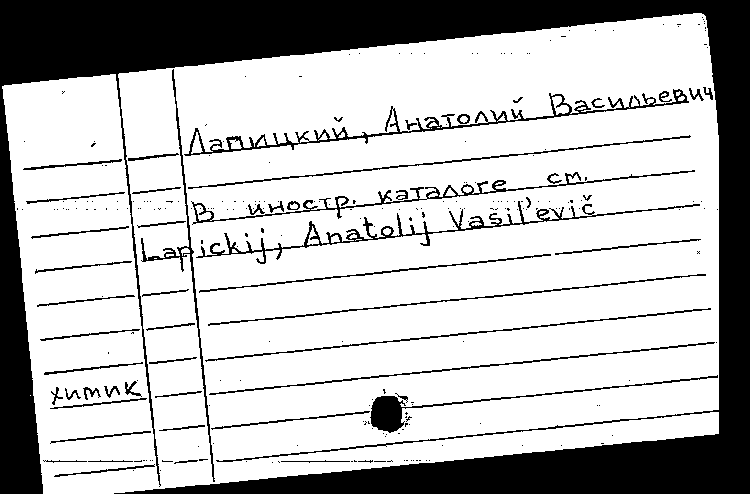 Лапицкий, Анатолий Васильевич
В иностр. каталоге см.
Lapickij, Anatolij Vasil'evič
химик